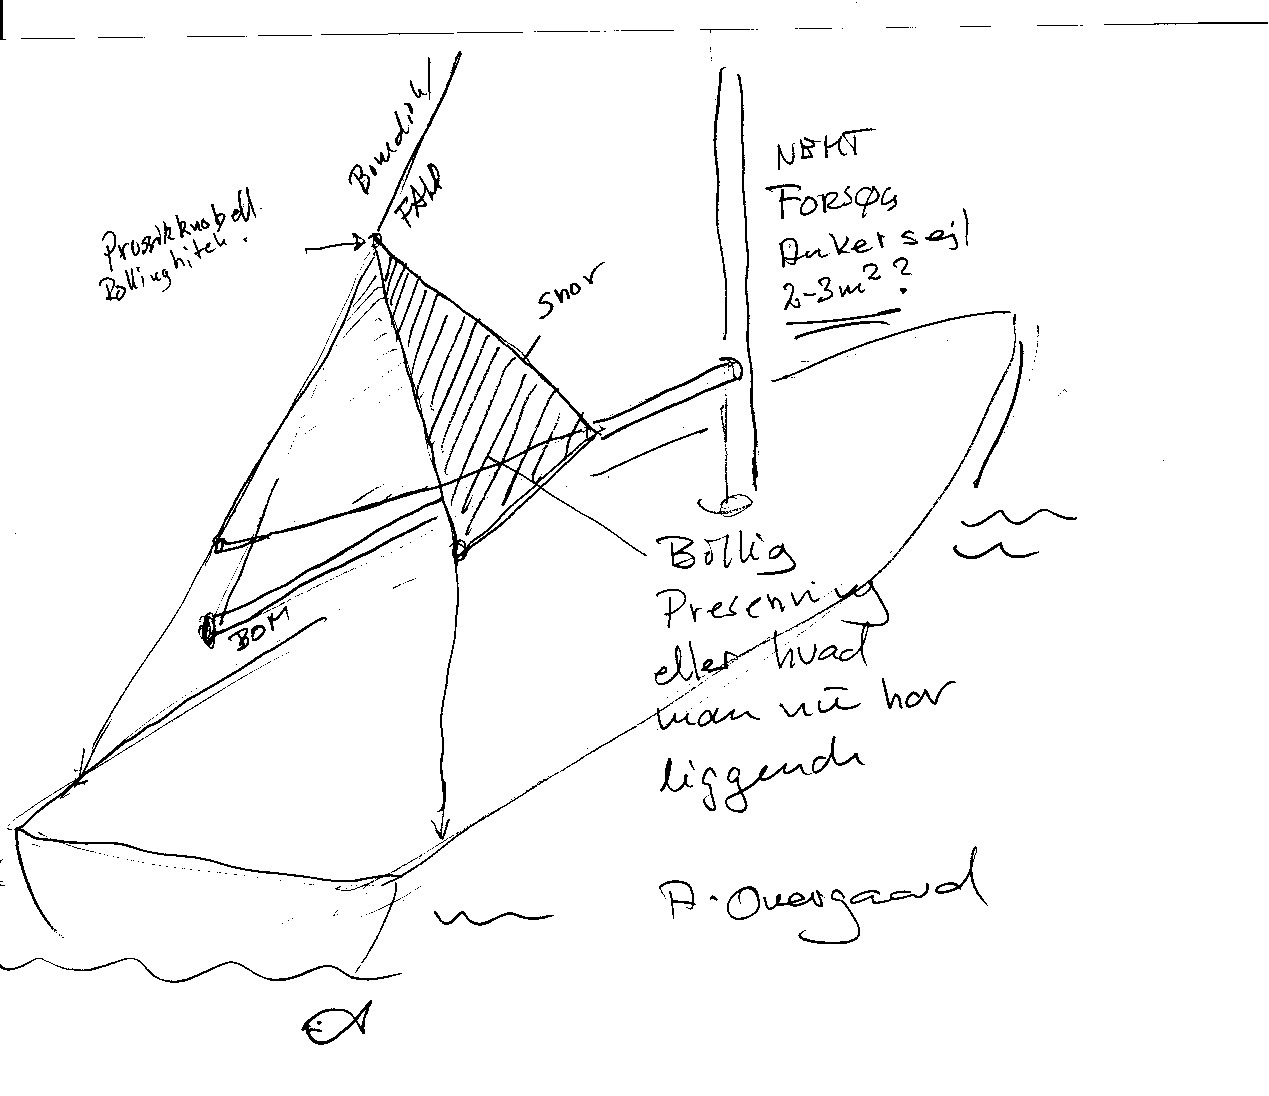 Bomdirk/
FALD
Prussikknobell.
Rollinghitch.
snor
NEMT
FORSØG
Ankersejl
2-3m²?
BOM
Billig
Presenning
eller hvad
man nu har
liggende
A. Overgaard